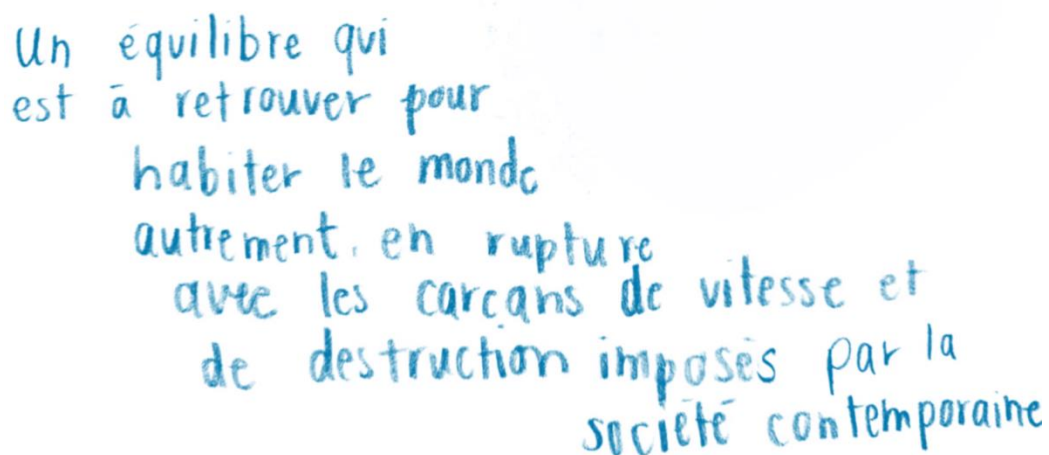 Un équilibre qui
est à retrouver pour
habiter le monde
autrement, en rupture
avec les carcans de vitesse et
de destruction imposés par la
société contemporaine